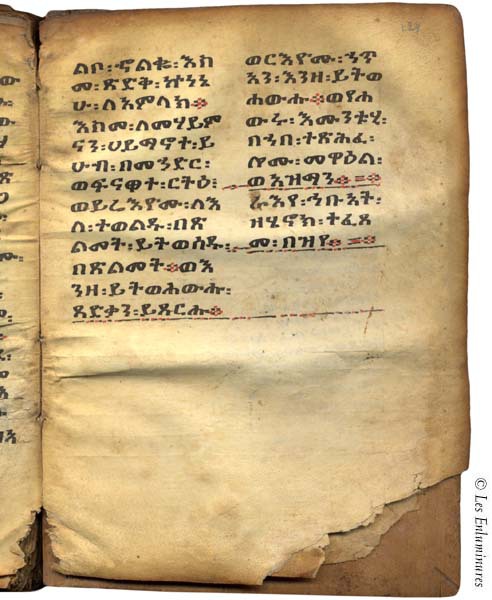 ልቦ፡ኆልቈ፡እስ
መ፡ጽድቅ፡ኵነኔ
ሁ፡ለአምላክ።
እስመ፡ለመሃይም
ናን፡ሀይማኖተ፡ይ
ሁብ፡በመኀድር፡
ወፍናዋተ፡ርትዕ፡
ወይሬእዮሙ፡ለእ
ለ፡ተወልዱ፡በጽ
ልመት፡ይትወሰዱ፡
በጽልመት።ወእ
ንዘ፡ይትወሐውሑ፡
ጻድቃን፡ይጸርሑ።
ወርእዮሙ፡ኀጥ
አን፡እንዘ፡ይትወ
ሐውሑ።ወየሐ
ውሩ፡እሙንቱሂ፡
በኀበ፡ተጽሕፈ፡
ሎሙ፡መዋዕል፡
ወአዝማን።
ራእየ፡ኀቡአት፡
ዘሄኖክ፡ተፈጸ
መ፡በዝየ።
© Les Enluminures